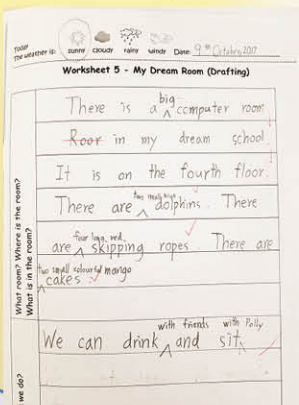 Today
The weather is:
sunny cloudy rainy windy Date: 9th October, 2017
Worksheet 5 - My Dream Room (Drafting)
What room? Where is the room?
What is in the room?
big
There is a ^ computer room
Roor in my dream school.
It is on the fourth floor.
two
There are ^ dolphins. There
four long, red,
are ^ skipping ropes. There are
two small coloured mango
^ cakes.
with friends with Polly
We can drink ^ and sit ^
we do?